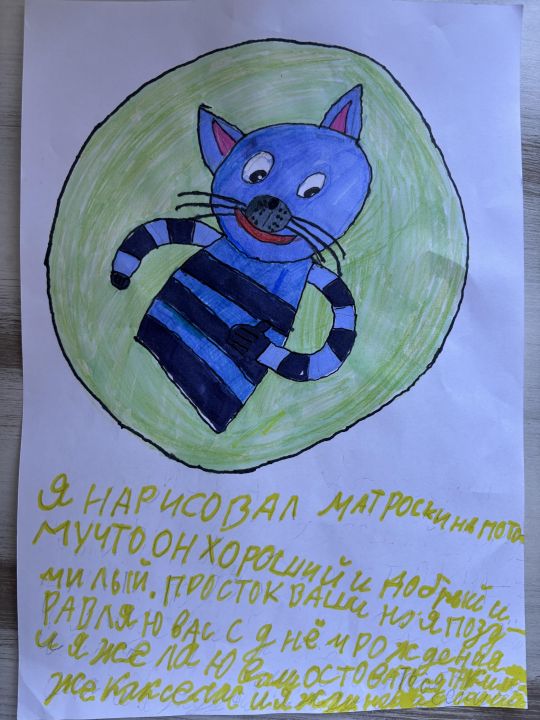 Я НАРИСОВАЛ МАТРОСКИНА ПОТО-
МУЧТО ОН ХОРОШИЙ И ДОБРЫЙ И
МИЛЫЙ. ПРОСТОКВАШИНО Я ПОЗД-
РАВЛЯЮ ВАС С ДНЁМ РОЖДЕНИЯ
И Я ЖЕЛАЮ ВАМ ОСТОВАТЬСЯ ТАКИМ
ЖЕ КАК СЕЙЧАС И Я